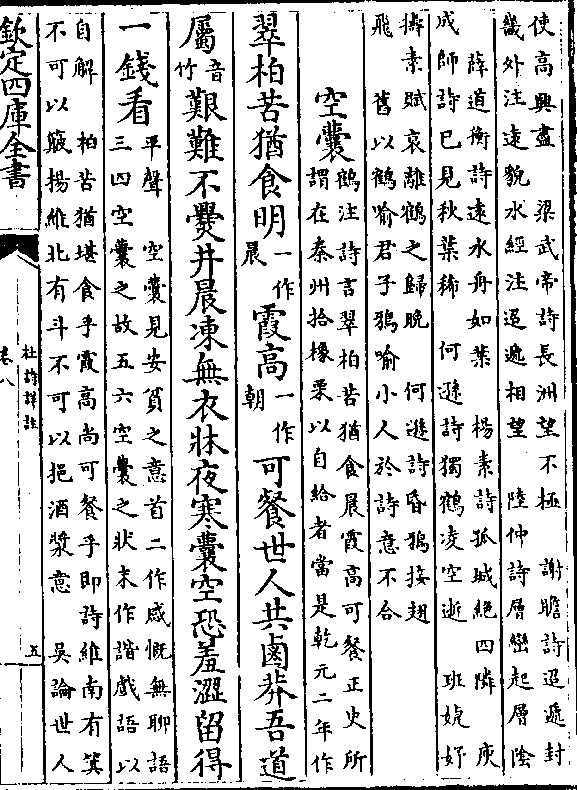 使高興盡　梁武帝詩長洲望不極　謝瞻詩迢遞封
畿外注遠貌水經注迢遞相望　陸仲詩層巒起層陰
薛道衡詩遠水舟如葉　楊素詩孤城絕四隣　庾
成師詩已見秋葉稀　何遜詩獨鶴凌空逝　班婕妤
擣素賦哀離鶴之歸晚　何遜詩昏鴉接翅
飛　舊以鶴喻君子鴉喻小人於詩意不合
空囊
鶴注詩言翠柏苦猶食晨霞高可餐正史所
謂在秦州拾橡栗以自給者當是乾元二年作
翠柏苦猶食明一作晨霞高一作朝可餐世人共鹵莽吾道
屬音竹艱難不爨井晨凍無衣牀夜寒囊空恐羞澀留得
一錢看
平聲　空囊見安貧之意首二作感慨無聊語
三四空囊之故五六空囊之狀末作諧戲語以
自解　柏苦猶堪食乎霞高尚可餐乎即詩維南有箕
不可以簸揚維北有斗不可以挹酒漿意　吳論世人
欽定四庫全書
杜詩詳註
卷八
五